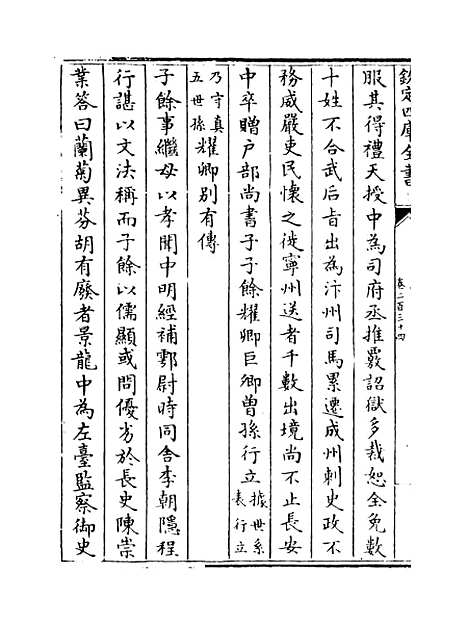 欽定四庫全書
卷二百三十四
服其得禮天授中為司府丞推覈詔獄多裁恕全免數
十姓不合武后旨出為汴州司馬累遷成州刺史政不
務威嚴吏民懷之徙寧州送者千數出境尚不止長安
中卒贈户部尚書子子餘耀卿巨卿曾孫行立據世系表行立
乃守真五世孫耀卿別有傳
子餘事繼母以孝聞中明經補鄠尉時同舍李朝隱程
行諶以文法稱而子餘以儒顯或問優劣於長史陳崇
業答曰蘭菊異芬胡有廢者景龍中為左臺監察御史